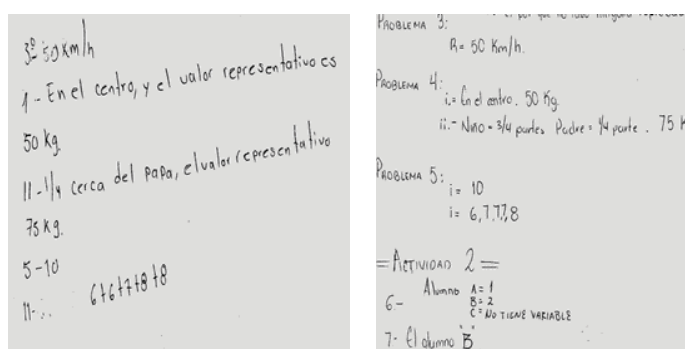 3º- 50 Km/h
1- En el centro, y el valor representativo es
50 Kg
11-1/4 cerca del papa, el valor representativo
75 Kg.
5-10
11-... 6+6+7+8+8
PROBLEMA 3:
R= 50 Km/h.
PROBLEMA 4:
i.= En el centro. 50 Kg.
ii.- Niño = 3/4 partes Padre = 1/4 parte. 75 K
PROBLEMA 5:
i= 10
i= 6,7,7,7,8
=ACTIVIDAD 2=
6.- Alumno A= 1
B= 2
C= NO TIENE VARIABLE
7- El alumno "B"